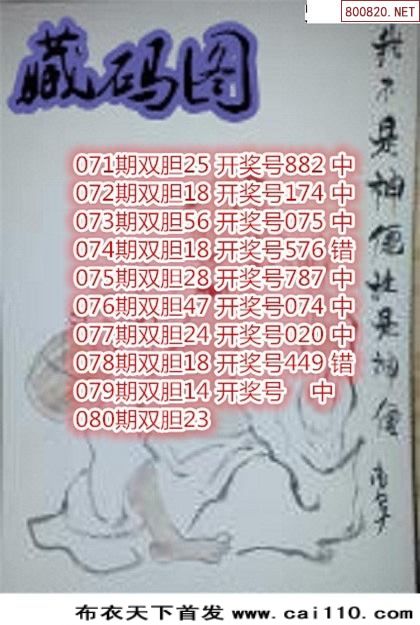 800820.NET
藏码图
071期双胆25 开奖号882 中
072期双胆18 开奖号174 中
073期双胆56 开奖号075 中
074期双胆18 开奖号576 错
075期双胆28 开奖号787 中
076期双胆47 开奖号074 中
077期双胆24 开奖号020 中
078期双胆18 开奖号449 错
079期双胆14 开奖号 中
080期双胆23
我不是神仙谁是神仙
布衣天下首发 www.cai110.com